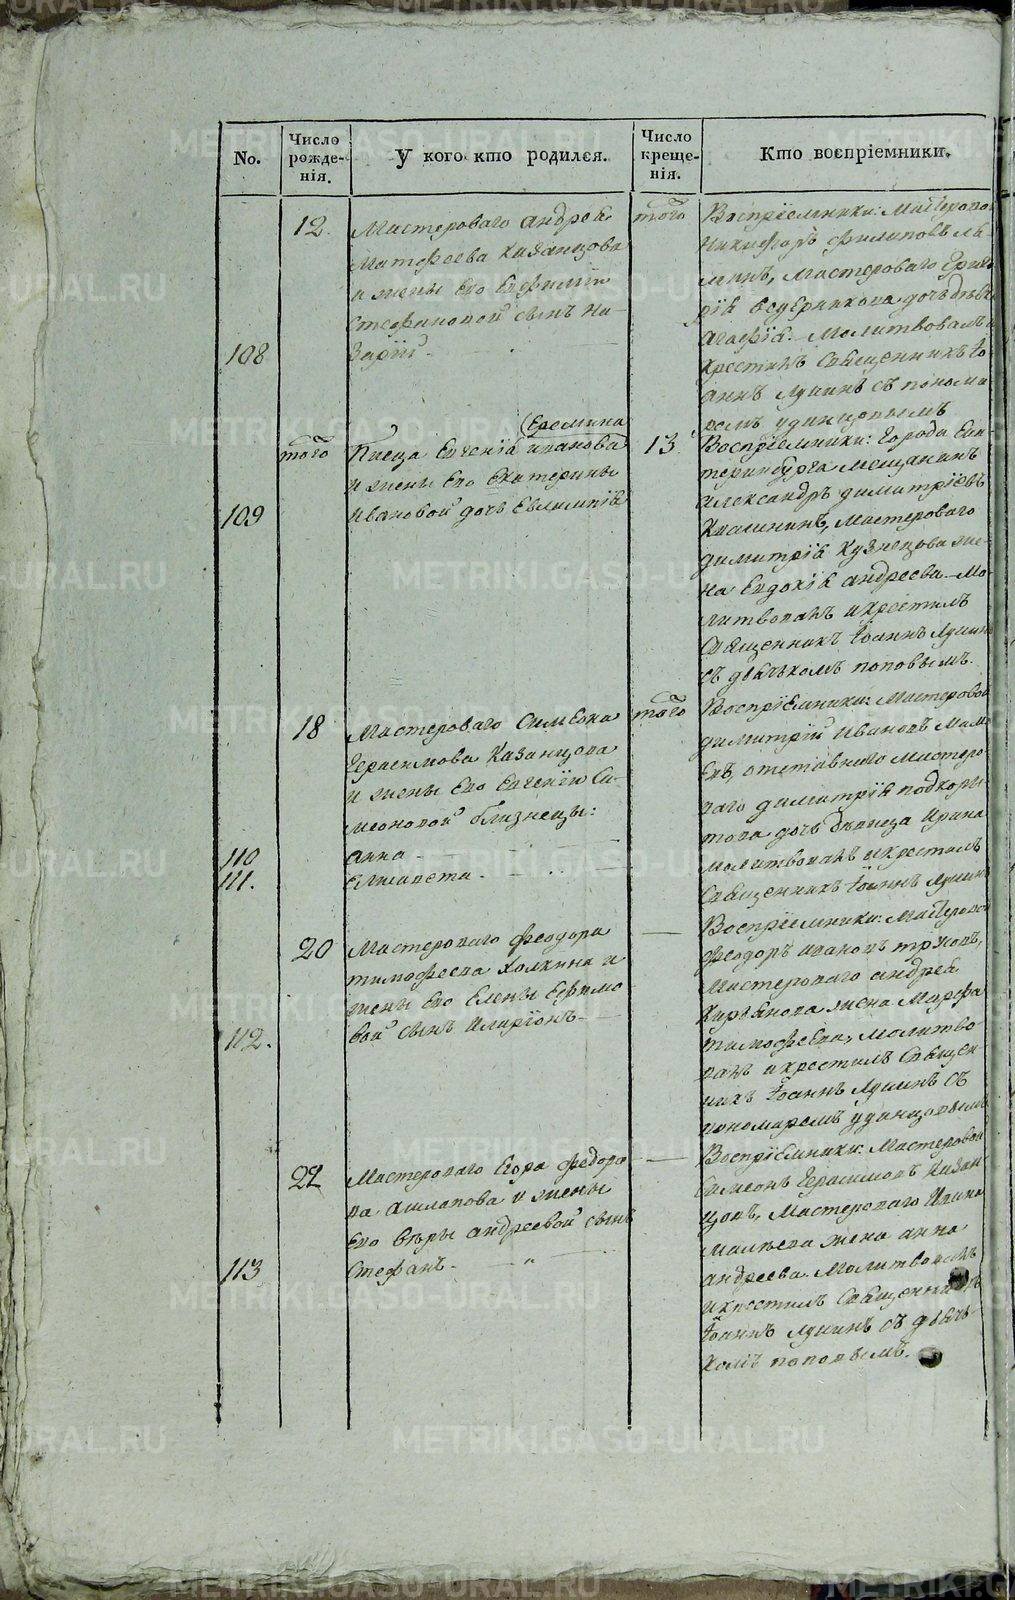 No.
Число рожде-нія.
У кого кто родился.
Число креще-нія.
Кто воспріемники.
12.
Мастероваго Андрея
Матфеева Казанцова
и жены его Евфиміи
Стефановой сынъ На-
108
зарій
того
Воспріемники: Мастерово
Никифоръ Филиповъ
Мастероваго Григо
рія Ведерникова дочь девка
Агафія. Молитвовалъ и
Крестилъ Священникъ Іо
аннъ Лукинъ съ понома
ремъ Удинцовымъ
того
(Еремина
Писца Евгенія Иванова
и жены его Екатерины
109
Ивановой дочь Евлампія
13.
Воспріемники: Города Ека-
теринбурга мещанинъ
Александръ Димитріевъ
Калининъ, Мастероваго
Димитрія Кузнецова же-
на Евдокія Андреева. Мо-
литвовалъ и крестилъ
Священникъ Іоаннъ Лукинъ
съ дьячькомъ Поповымъ.
18
Мастероваго Симеона
Герасимова Казанцова
и жены его Евгеніи Си-
меоновой близнецы:
110
Анна
111.
Елисавета
того
Воспріемники: Мастеровой
Димитрій Ивановъ Мама
евъ, отставнаго мастеро-
ваго Димитрія Подкоры
това дочь девица Ирина
молитвовалъ и крестилъ
Священникъ Іоаннъ Лукинъ
20
Мастероваго Феодора
Тимофеева Колкина и
жены его Елены Ефимо
112.
вой сынъ Иларіонъ
Воспріемники: Мастеровой
Феодоръ Ивановъ
Мастероваго Андрея
Кирьянова жена Марфа
Тимофеева, Молитво
валъ и крестилъ Священ
никъ Іоаннъ Лукинъ съ
пономаремъ Удинцовымъ
22
Мастероваго Егора Федоро
ва Ашлапова и жены
его Веры Андреевой сынъ
113
Стефанъ
Воспріемники: Мастеровой
Симеонъ Герасимовъ Казан
цовъ, Мастероваго Ивана
жена Анна
Андреева. Молитвовалъ
и крестилъ Священникъ
Іоаннъ Лукинъ съ дьячь
комъ Поповымъ.
METRIKI.GASO-URAL.RU